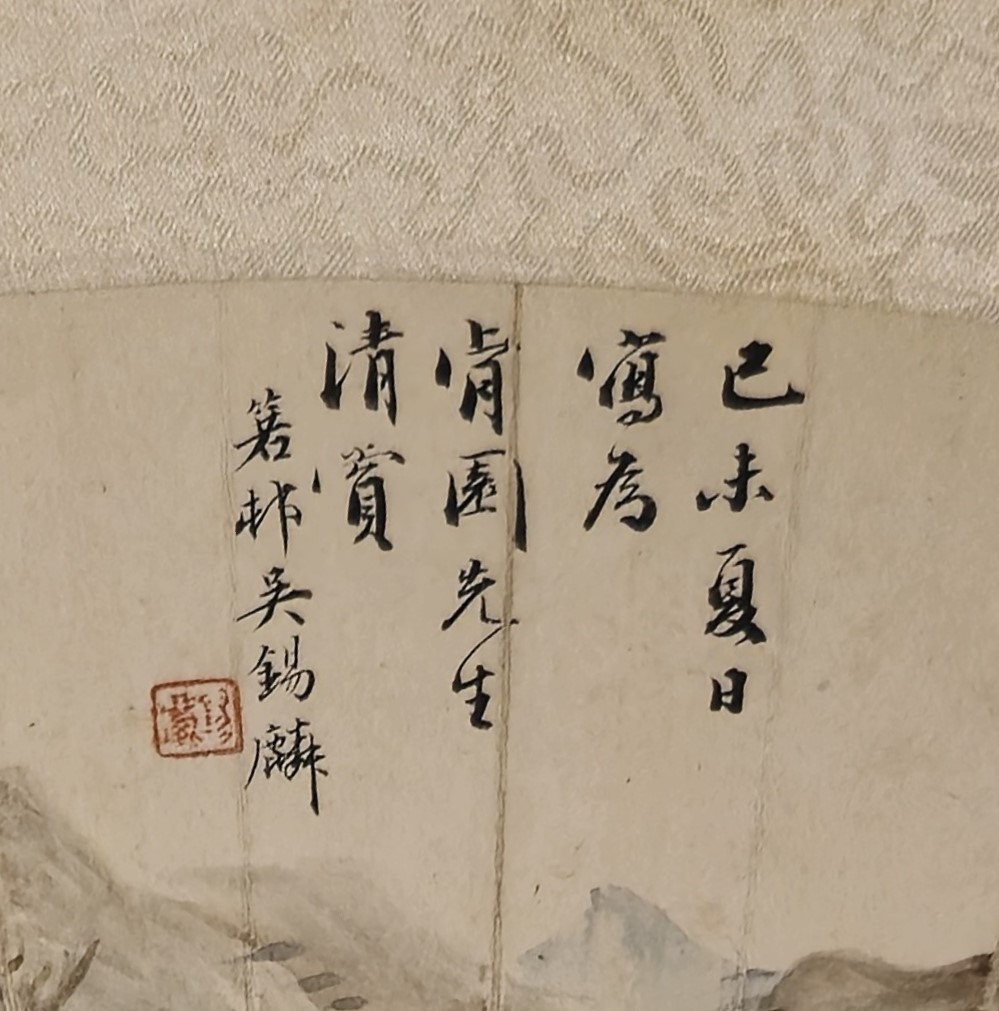 己未夏日
寫為
肯園先生
清賞
箬邨吳錫麟